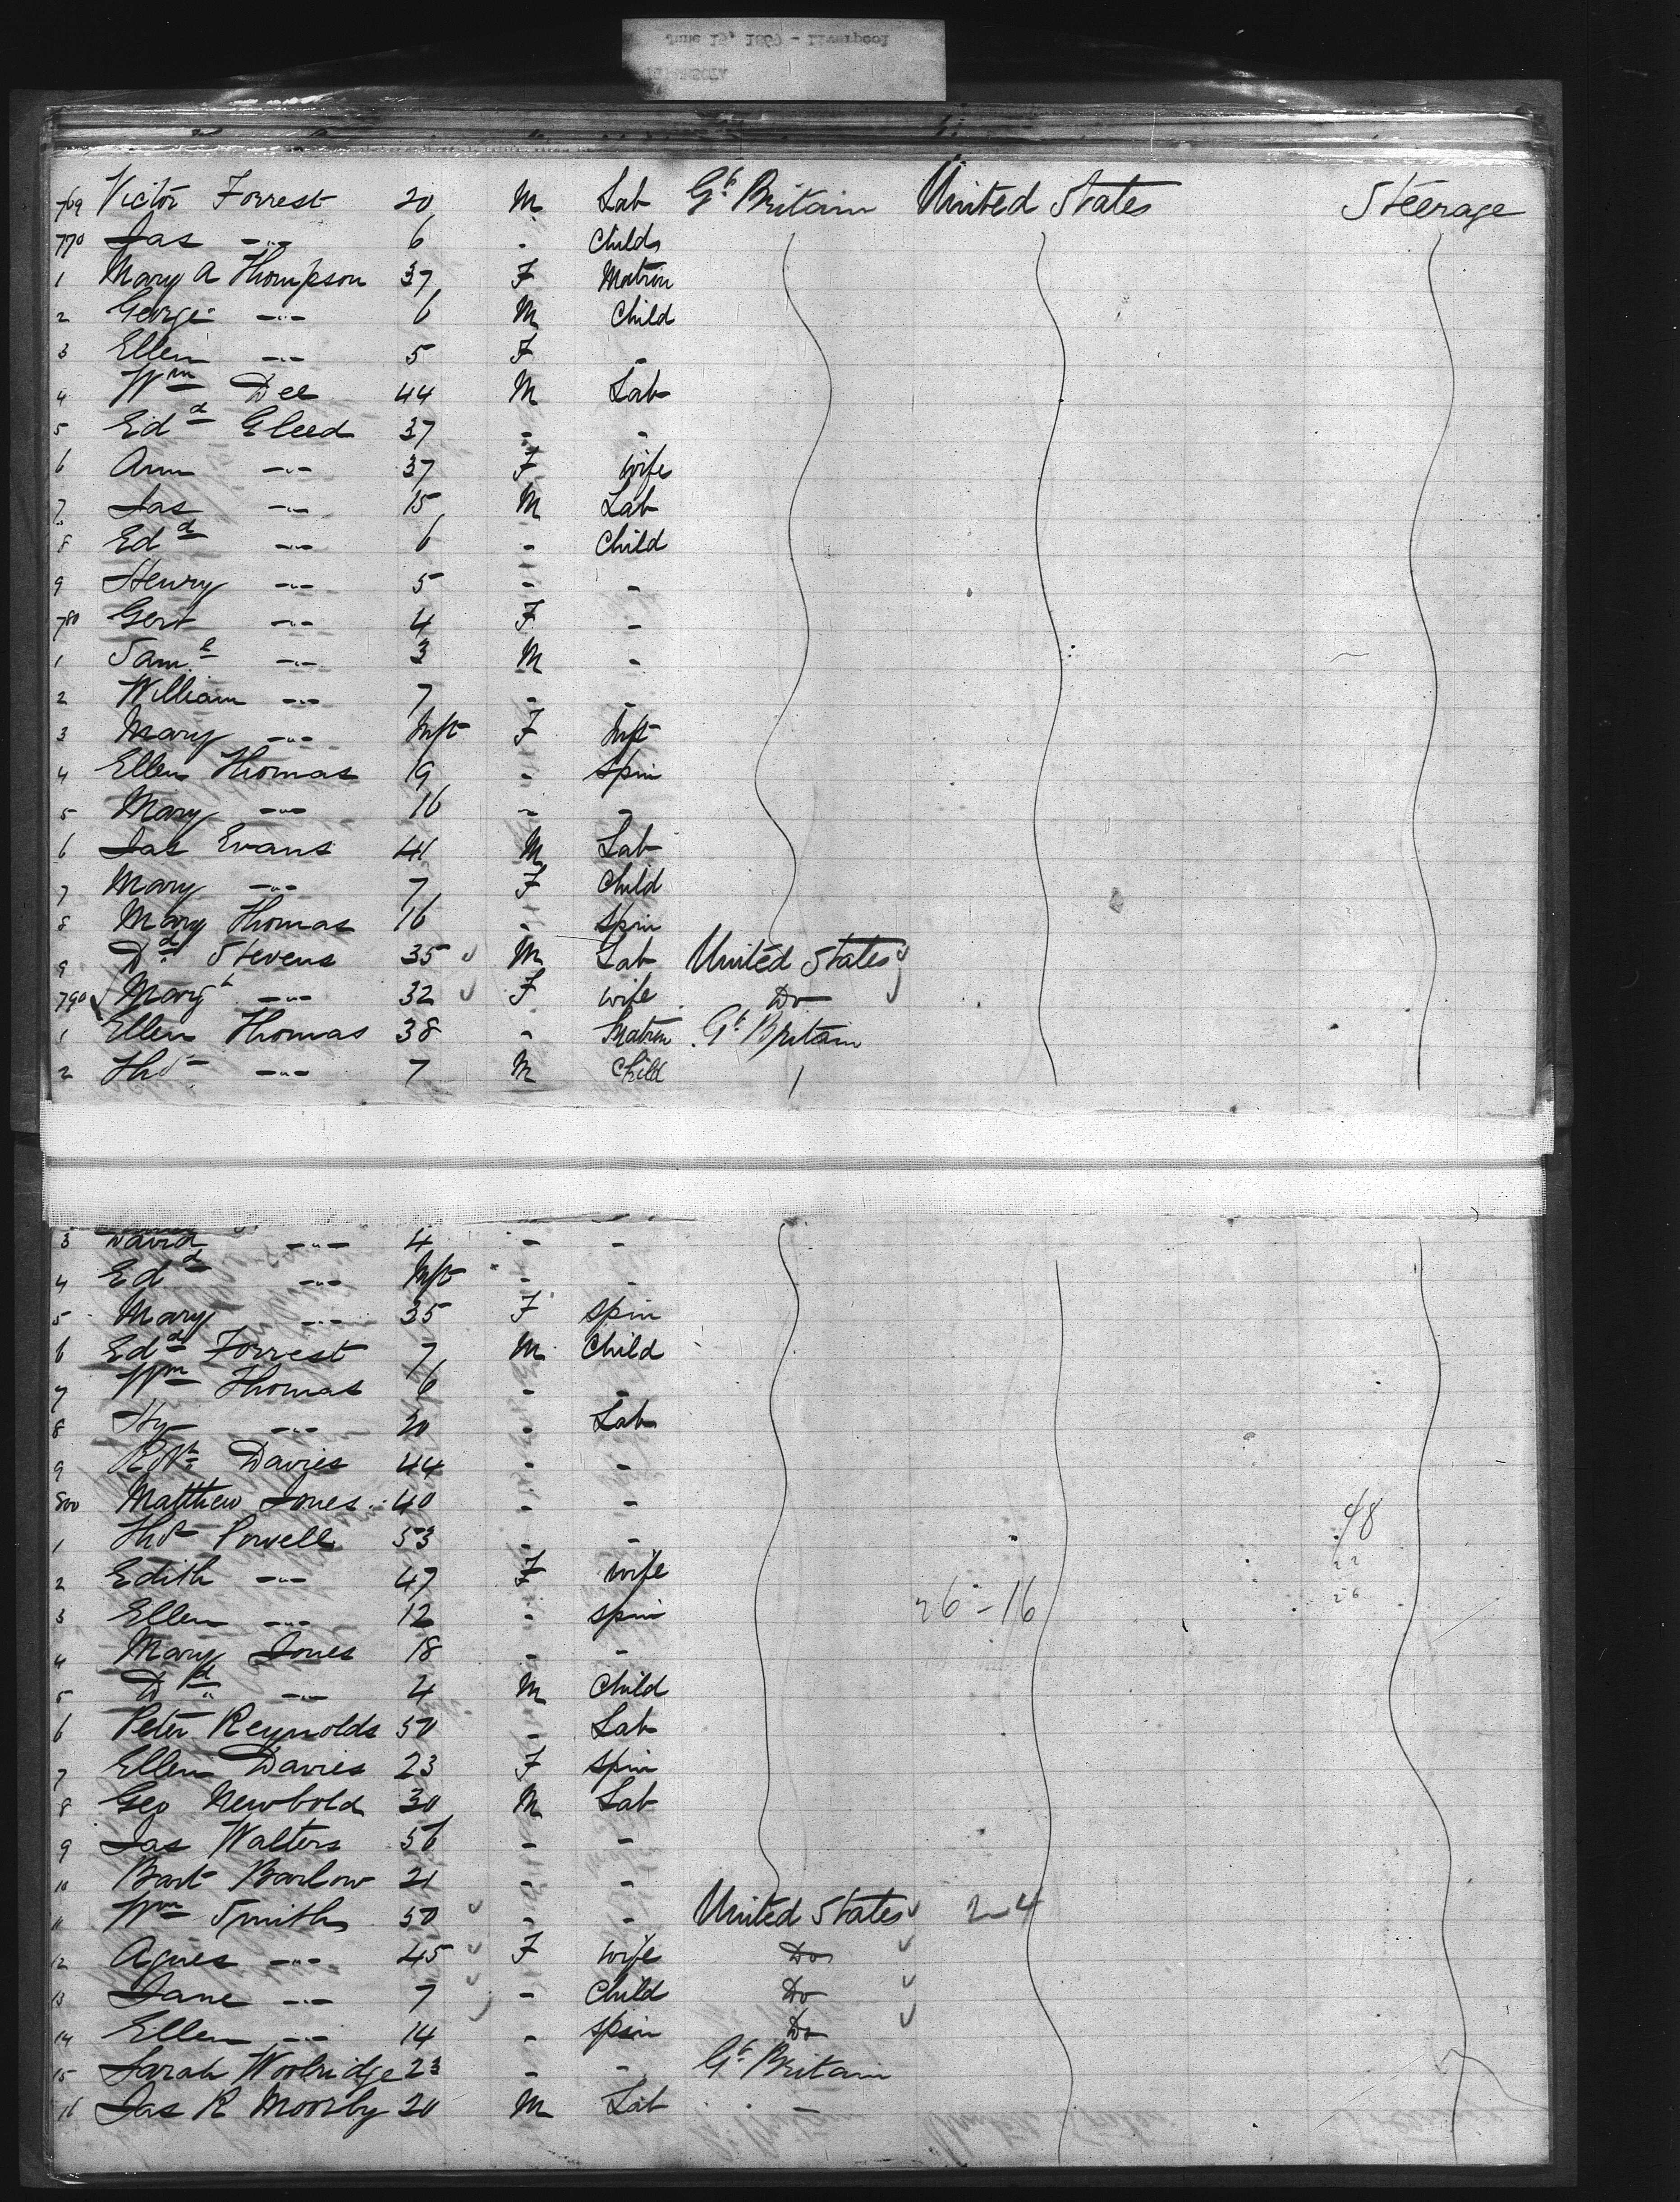 June 15, 1869 - Liverpool
769 Victor Forrest 20 M Lab Gt Britain United States Steerage
770 Jas -"- 6 - Childs
1 Mary A Thompson 37 F Matron
2 George -"- 6 M Child
3 Ellen -"- 5 F -
4 Wm Dee 44 M Lab
5 Edd Gleed 37 - -
6 Ann -"- 37 F wife
7 Jas -"- 15 M Lab
8 Edd -"- 6 - Child
9 Henry -"- 5 - -
780 Gert -"- 4 F -
1 Saml -"- 3 M -
2 William -"- 7 - -
3 Mary -"- Inft F Inft
4 Ellen Thomas 19 - spin
5 Mary -"- 16 - -
6 Jas Evans 41 M Lab
7 Mary -"- 7 F Child
8 Mary Thomas 16 - spin
9 Dd Stevens 35 M Lab United States
790 Margt -"- 32 F wife Do
1 Ellen Thomas 38 - Matron Gt Britain
2 Thos -"- 7 M Child
3 David -"- 4 - -
4 Edd -"- Inft - -
5 Mary -"- 35 F spin
6 Edd Forrest 7 M Child
7 Wm Thomas 6 - -
8 Hy -"- 20 - Lab
9 Robt Davies 44 - -
800 Matthew Jones 40 - - 48
1 Thos Powell 53 - -
2 Edith -"- 47 F wife 22
3 Ellen -"- 12 - spin 26-16 26
4 Mary Jones 18 - -
5 Dd -"- 4 M Child
6 Peter Reynolds 50 - Lab
7 Ellen Davies 23 F spin
8 Geo Newbold 30 M Lab
9 Jas Walters 56 - -
10 Bart Barlow 21 - -
11 Wm Smith 50 - - United States 2-4
12 Agnes -"- 45 F wife Do
13 Jane -"- 7 - Child Do
14 Ellen -"- 14 - spin Do
15 Sarah Woolridge 23 - - Gt Britain
16 Jas R Moorby 20 M Lab -